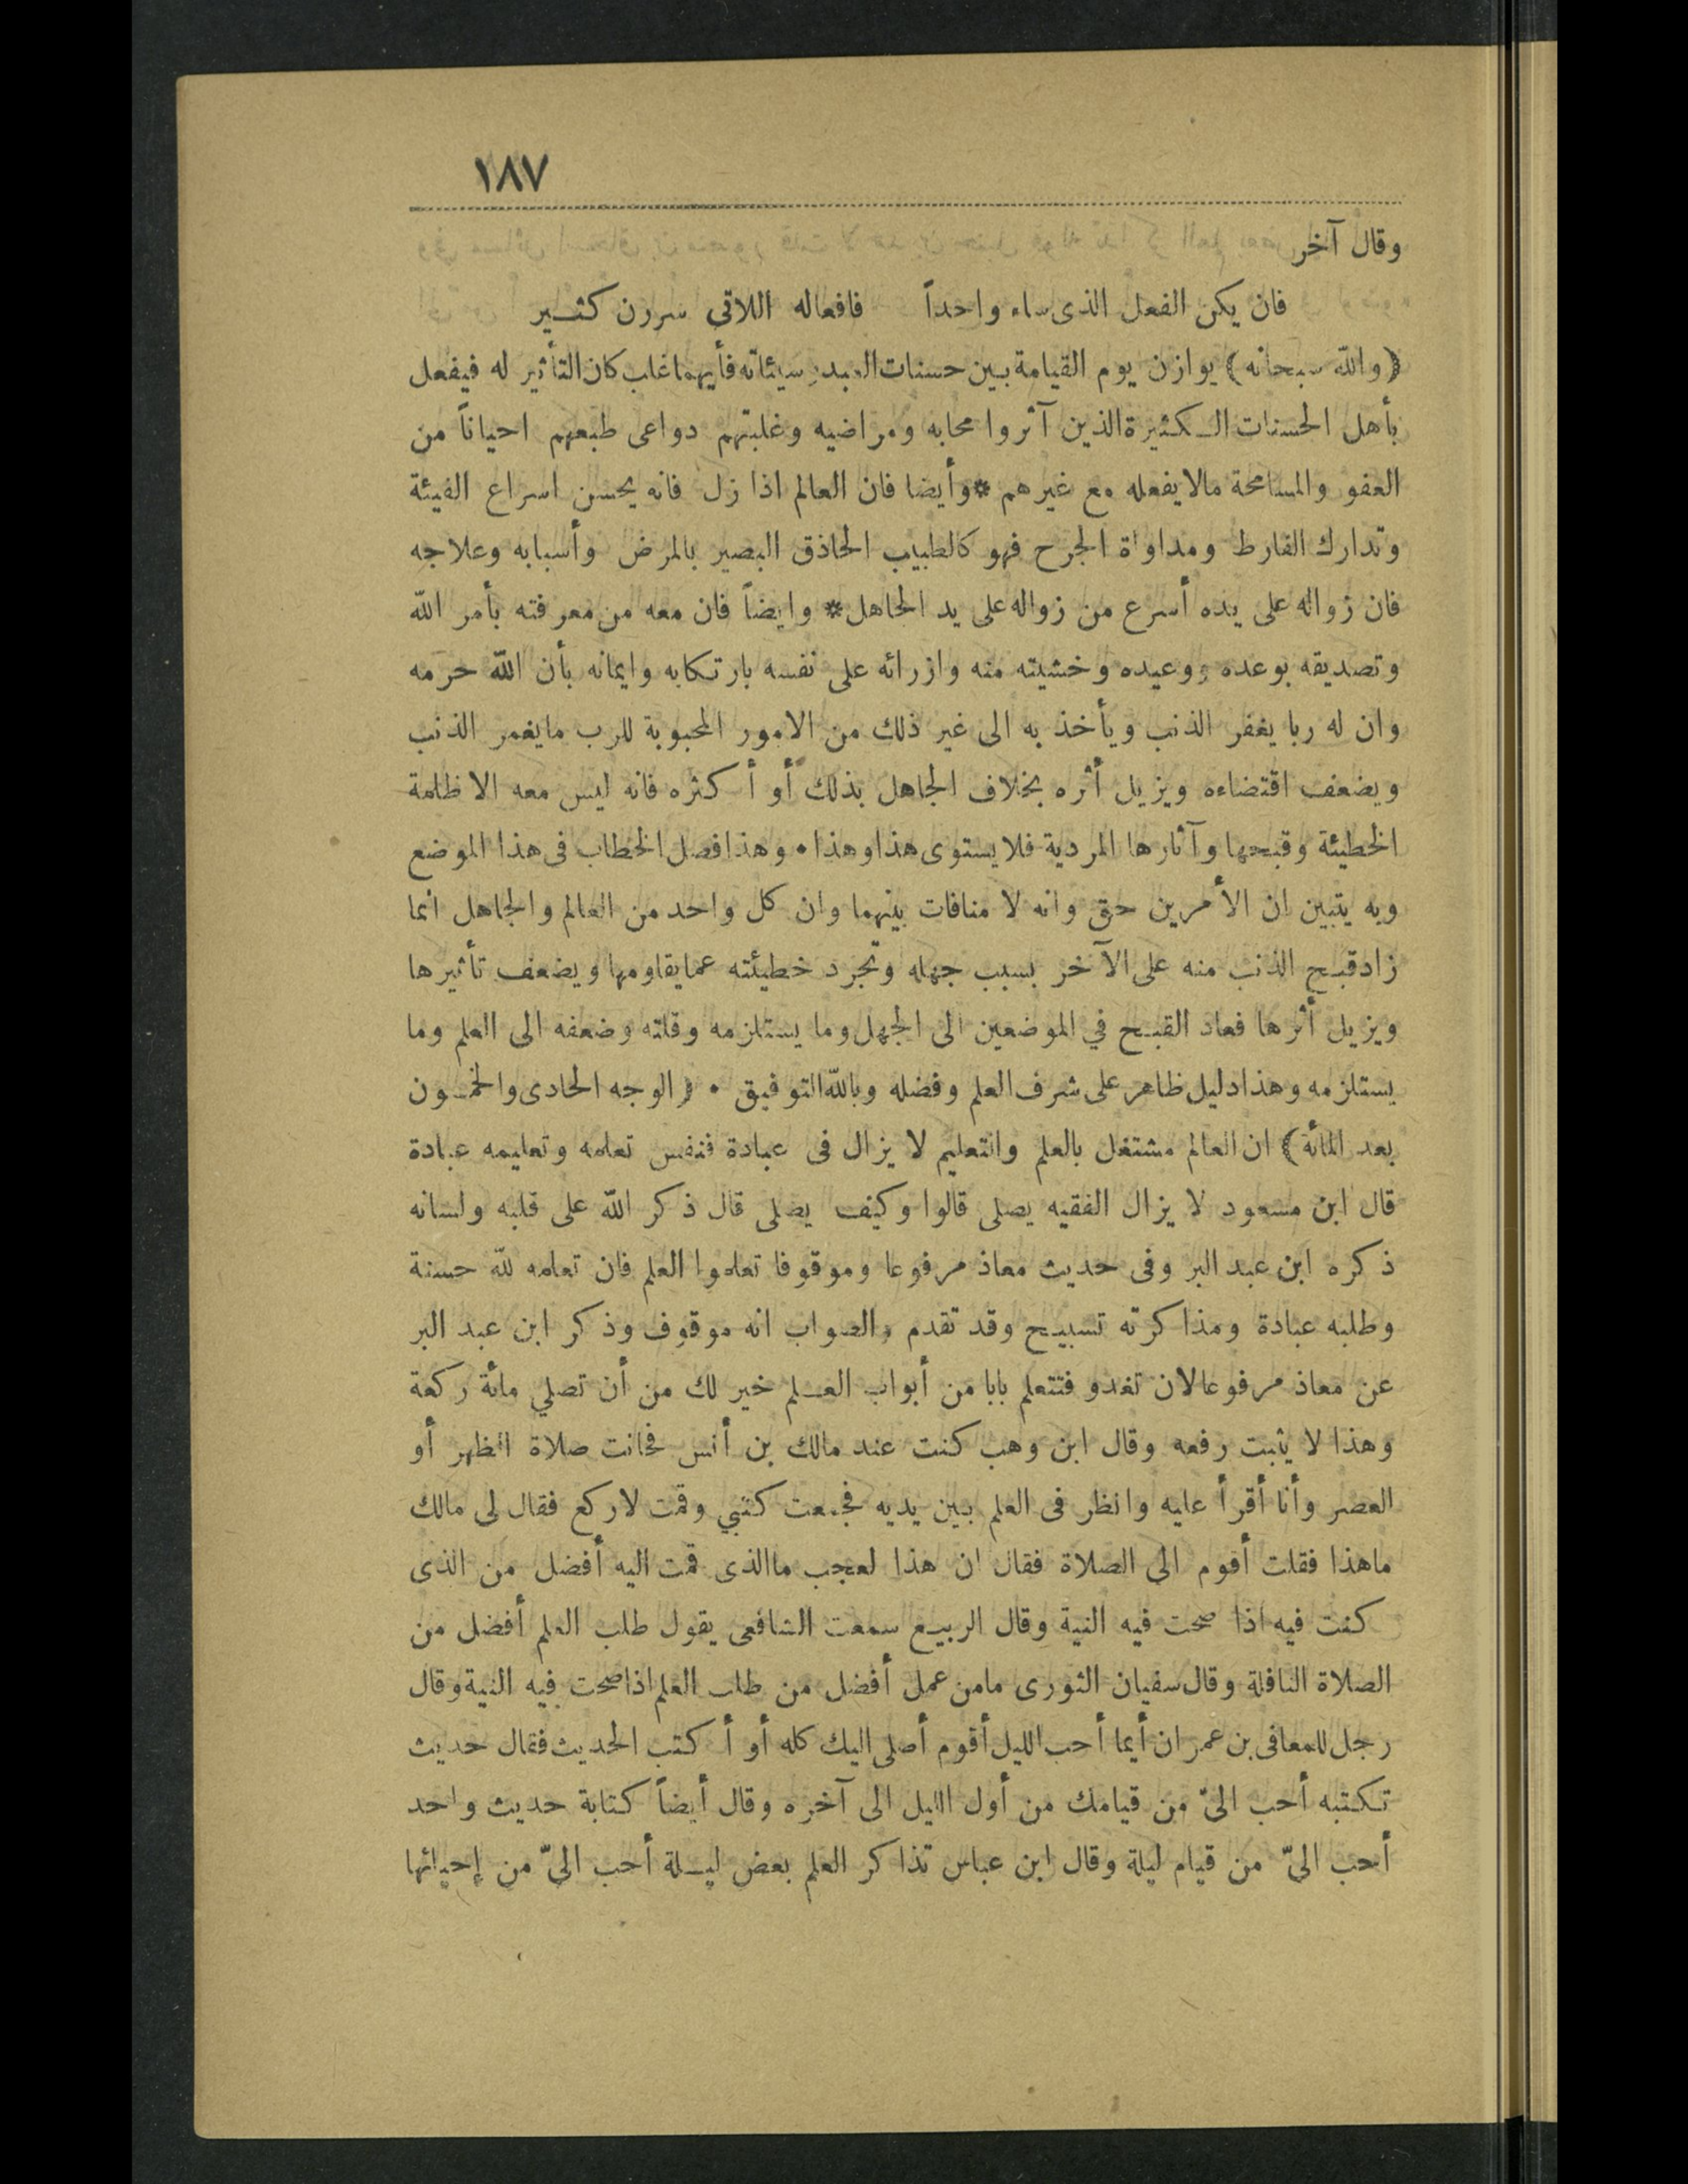 ١٨٧
وقال آخر
فان يكن الفعل الذى ساء واحداً فافعاله اللاتى سررن كثير
(والله سبحانه) يوازن يوم القيامة بين حسنات العبد وسيئاته فأيهما غلب كان التأثير له فيفعل
بأهل الحسنات الكثيرة الذين آثروا محابه ومراضيه وغلبتهم دواعى طبعهم احياناً من
العفو والمسامحة مالا يفعله مع غيرهم * وأيضا فان العالم اذا زل فانه يحسن اسراع الفيئة
وتدارك الفارط ومداواة الجرح فهو كالطبيب الحاذق البصير بالمرض وأسبابه وعلاجه
فان زواله على يده أسرع من زواله على يد الجاهل * وايضاً فان معه من معرفته بأمر الله
وتصديقه بوعده ووعيده وخشيته منه وازرائه على نفسه بارتكابه وايمانه بأن الله حرمه
وان له ربا يغفر الذنب ويأخذ به الى غير ذلك من الامور المحبوبة للرب مايغمر الذنب
ويضعف اقتضاءه ويزيل أثره بخلاف الجاهل بذلك أو أكثره فانه ليس معه الا ظلمة
الخطيئة وقبحها وآثارها المردية فلا يستوى هذا وهذا • وهذا فصل الخطاب فى هذا الموضع
وبه يتبين ان الأمرين حق وانه لا منافات بينهما وان كل واحد من العالم والجاهل انما
زاد قبح الذنب منه على الآخر بسبب جهله وتجرد خطيئته عما يقاومها ويضعف تأثيرها
ويزيل أثرها فعاد القبح في الموضعين الى الجهل وما يستلزمه وقلته وضعفه الى العلم وما
يستلزمه وهذا دليل ظاهر على شرف العلم وفضله وبالله التوفيق • (الوجه الحادى والخمسون
بعد المائة) ان العالم مشتغل بالعلم والتعليم لا يزال فى عبادة فنفس تعلمه وتعليمه عبادة
قال ابن مسعود لا يزال الفقيه يصلى قالوا وكيف يصلى قال ذكر الله على قلبه ولسانه
ذكره ابن عبد البر وفى حديث معاذ مرفوعا وموقوفا تعلموا العلم فان تعلمه لله حسنة
وطلبه عبادة ومذاكرته تسبيح وقد تقدم والصواب انه موقوف وذكر ابن عبد البر
عن معاذ مرفوعا لان تغدو فتتعلم بابا من أبواب العلم خير لك من أن تصلي مائة ركعة
وهذا لا يثبت رفعه وقال ابن وهب كنت عند مالك بن أنس فحانت صلاة الظهر أو
العصر وأنا أقرأ عليه وانظر فى العلم بين يديه فجمعت كتبي وقمت لاركع فقال لى مالك
ماهذا فقلت أقوم الى الصلاة فقال ان هذا لعجب ماالذى قمت اليه أفضل من الذى
كنت فيه اذا صحت فيه النية وقال الربيع سمعت الشافعى يقول طلب العلم أفضل من
الصلاة النافلة وقال سفيان الثورى مامن عمل أفضل من طلب العلم اذا صحت فيه النية وقال
رجل للمعافى بن عمران أيما أحب اليك أقوم أصلى الليل كله أو أكتب الحديث فقال حديث
تكتبه أحب الىّ من قيامك من أول الليل الى آخره وقال أيضاً كتابة حديث واحد
أحب الىّ من قيام ليلة وقال ابن عباس تذاكر العلم بعض ليلة أحب الىّ من إحيائها